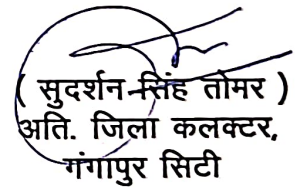 ( सुदर्शन सिंह तोमर )
अति. जिला कलक्टर,
गंगापुर सिटी